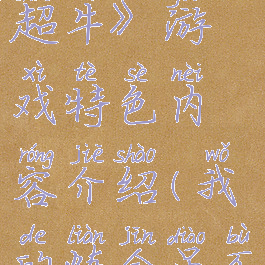 超牛》 游
xì tè sè nèi
戏特色内
róng jiè shào wǒ
容介绍(我
de liàn jīn diào bù